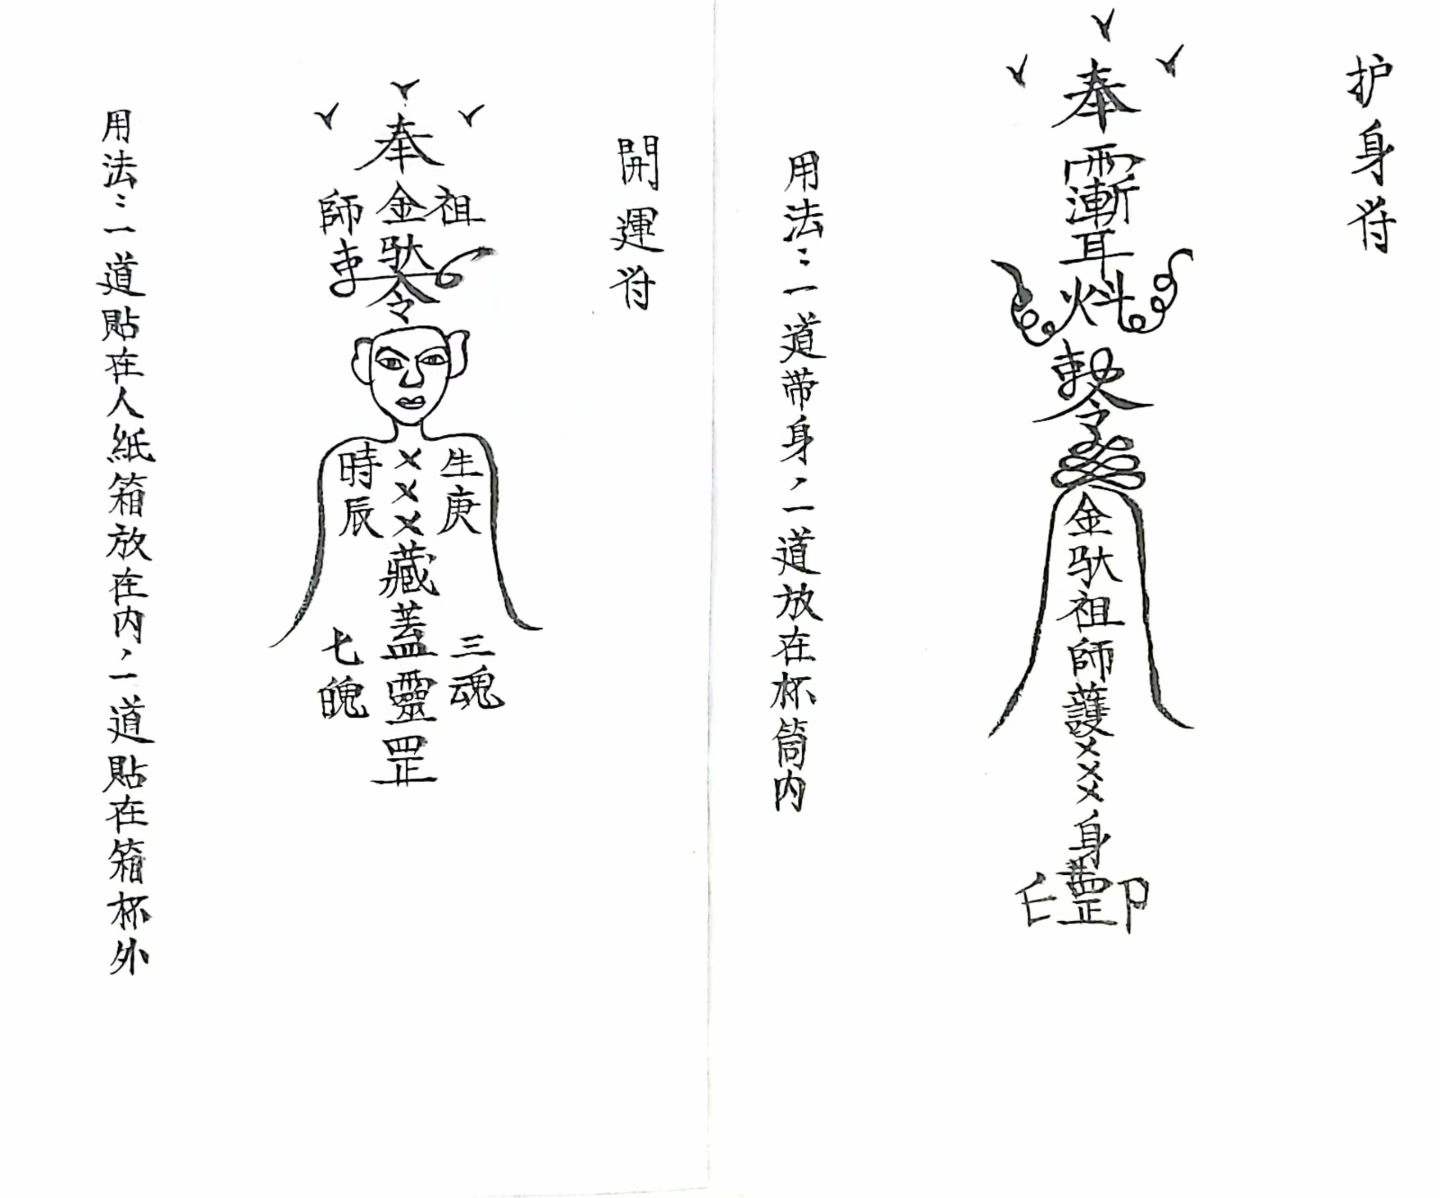 护身符
奉
耳
敕令
金馱祖師護×××身
罡
用法：一道带身、一道放在杯筒内
開運符
奉
祖
金馱
師
敕令
生庚
×××藏蓋靈罡
時辰
三魂
七魄
用法：一道貼在人紙箱放在内、一道貼在箱杯外